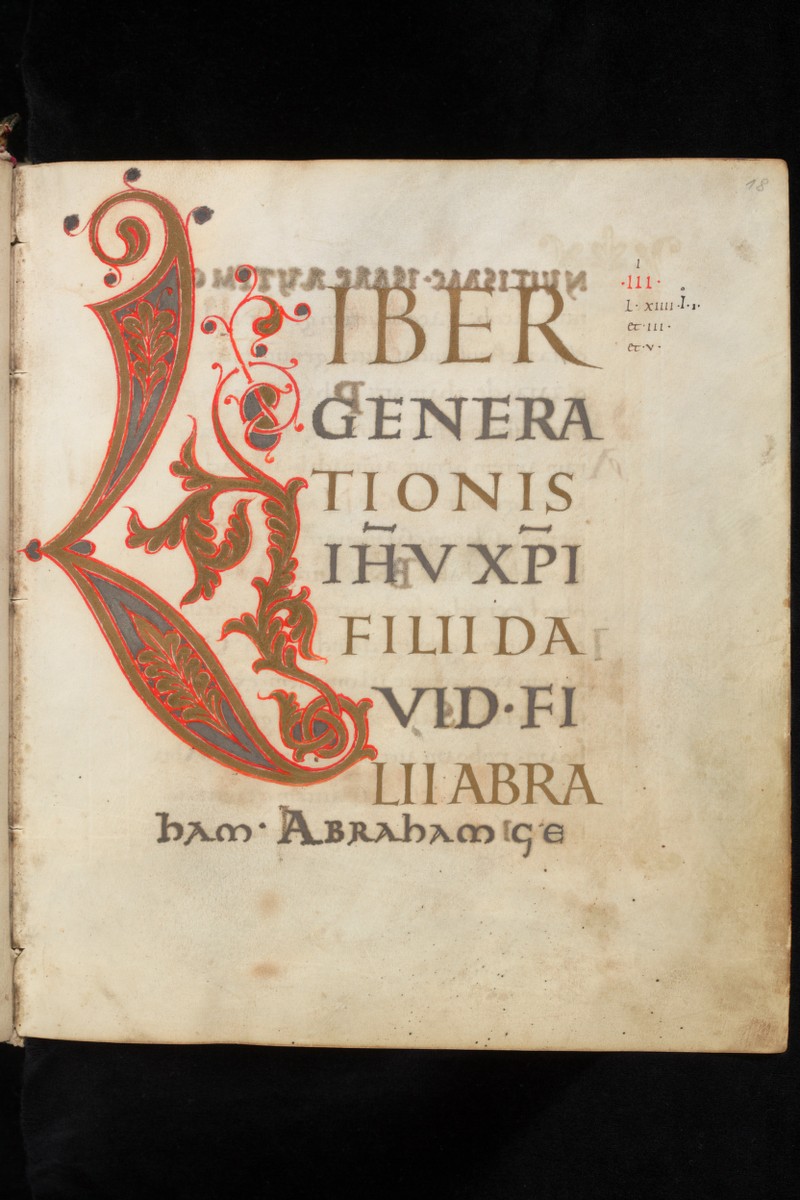 18
LIBER
GENERA
TIONIS
IH̅V XP̅I
FILII DA
VID·FI
LII ABRA
ham· Abraham ge
I
·III·
I· XIIII·
et·III·
et·V·